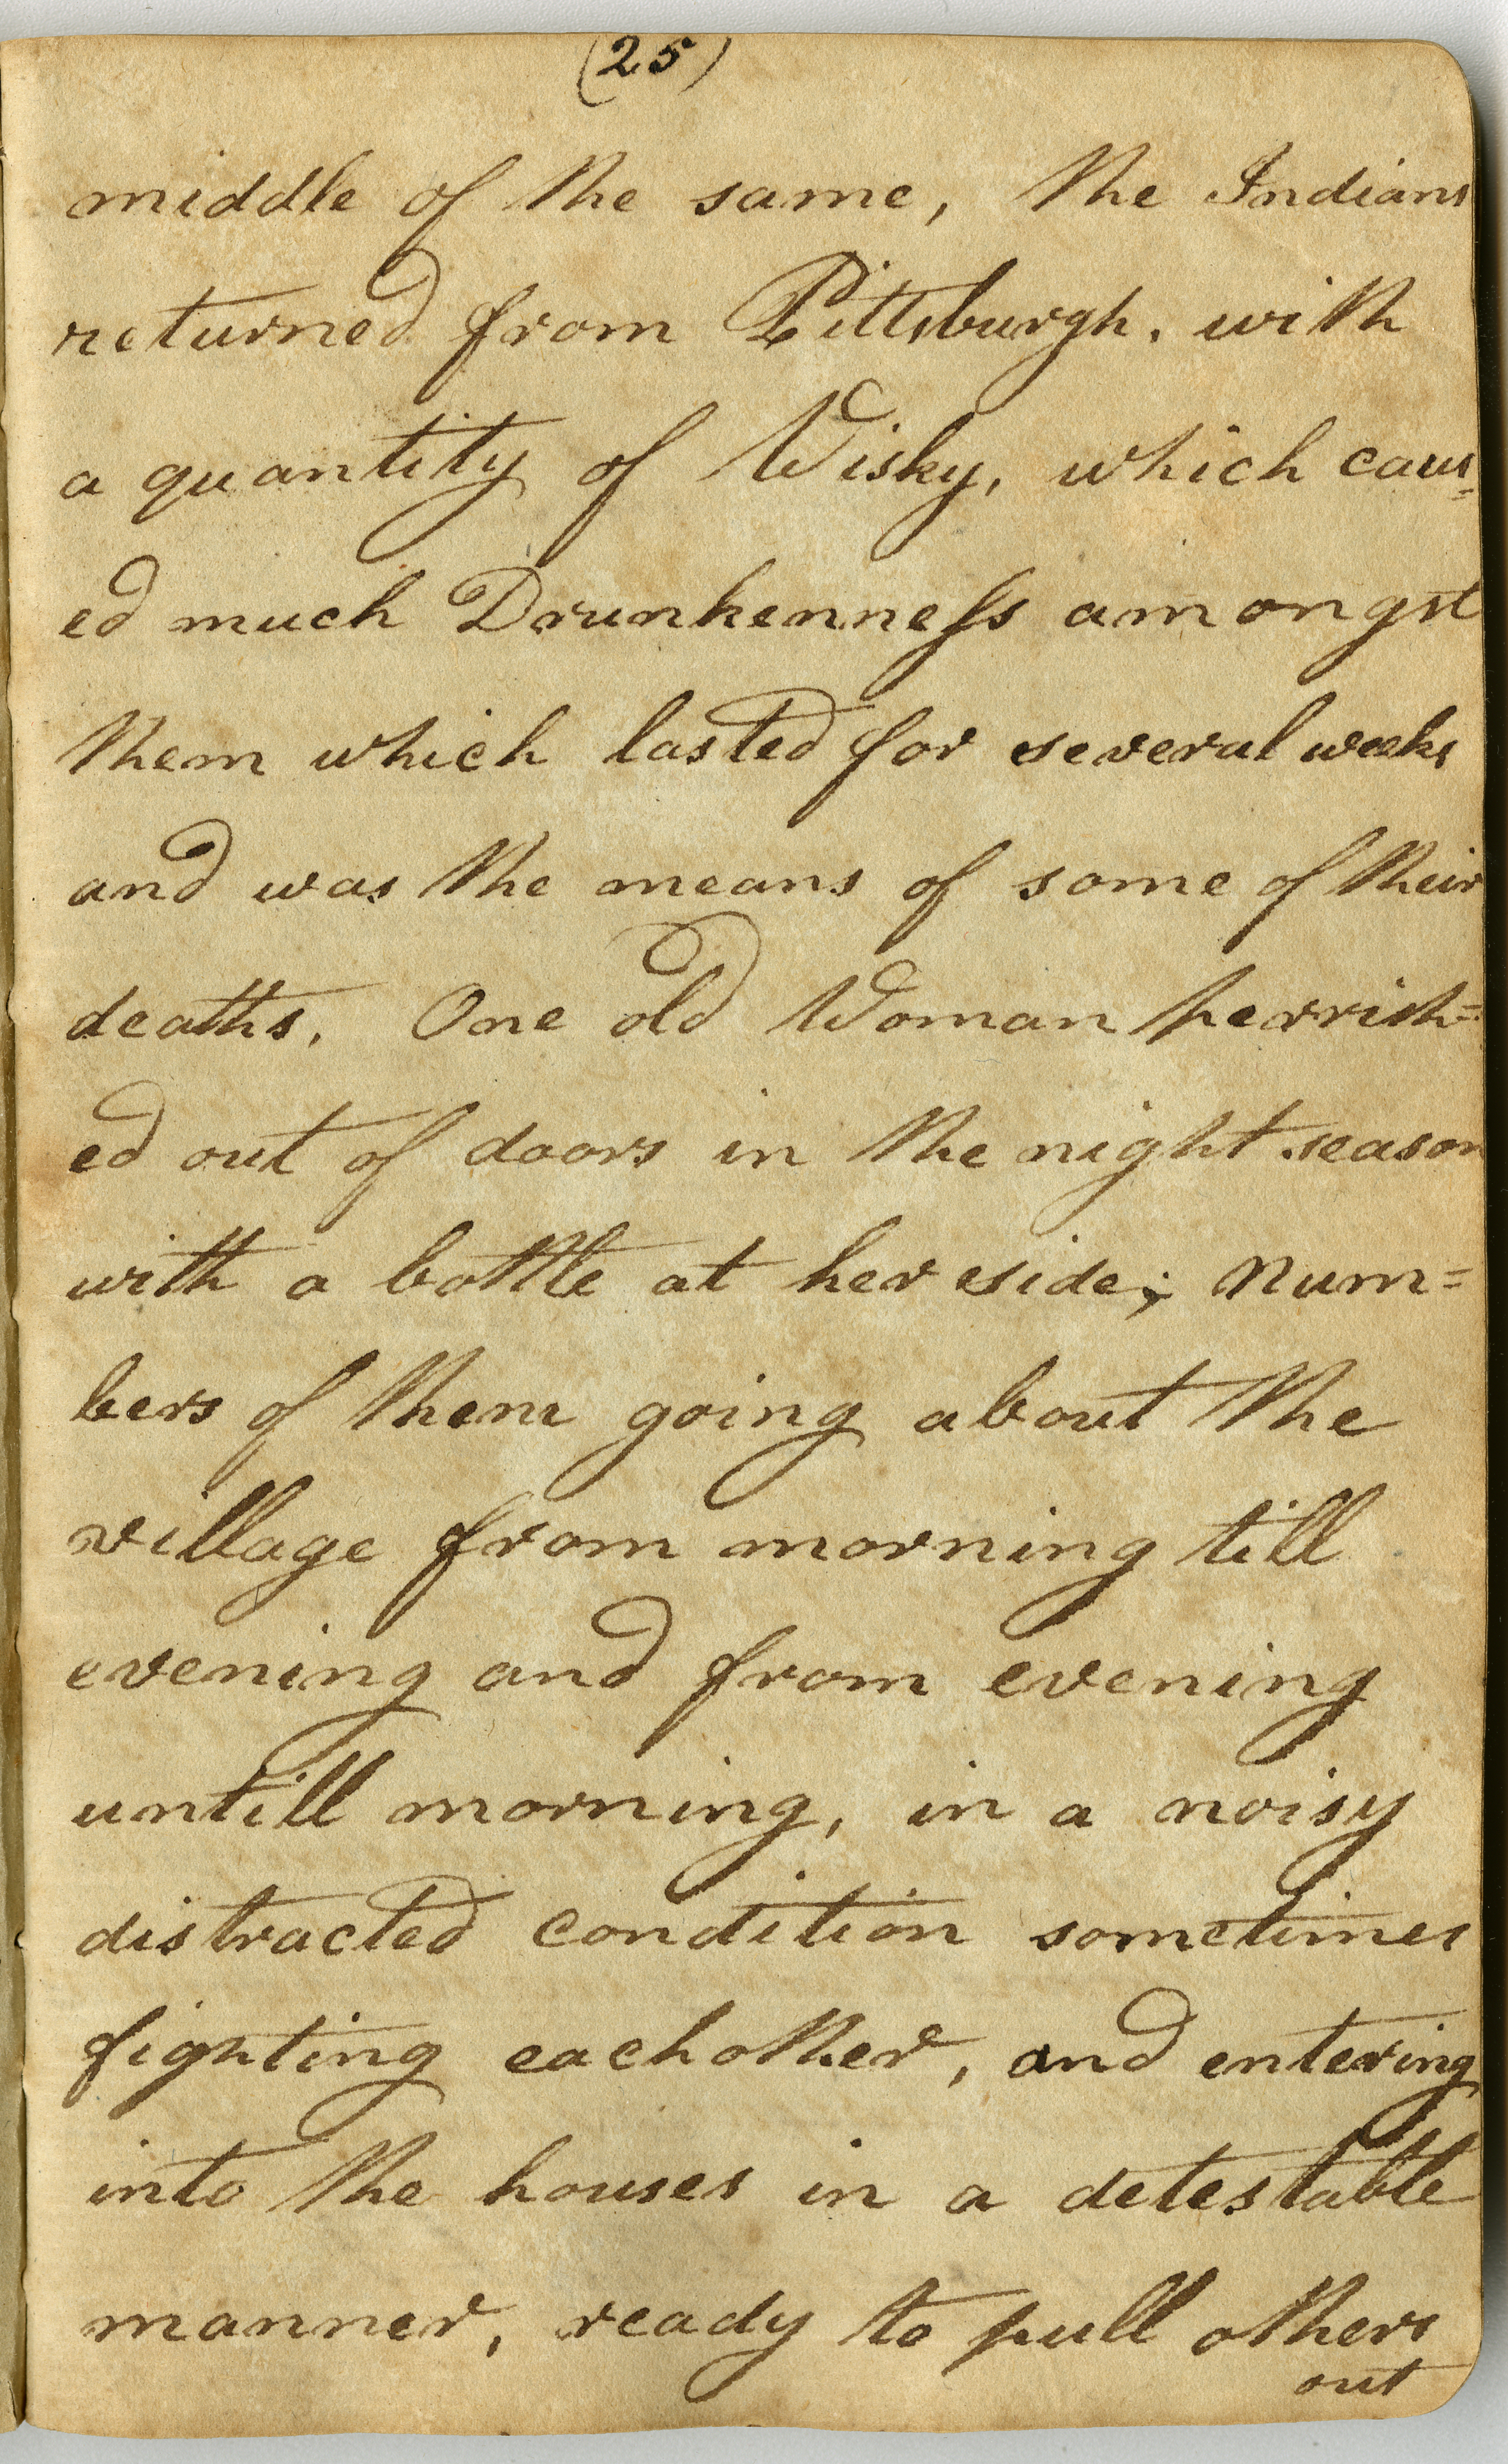 (25)
middle of the same, the Indians
returned from Pittsburgh, with
a quantity of Wisky, which caus=
ed much Drunkenness amongst
them which lasted for several weeks
and was the means of some of their
deaths. One old Woman perrish=
ed out of doors in the night season
with a bottle at her side; Num=
bers of them going about the
village from morning till
evening and from evening
untill morning, in a noisy
distracted condition sometimes
fighting eachother, and entering
into the houses in a detestable
manner, ready to pull others
out